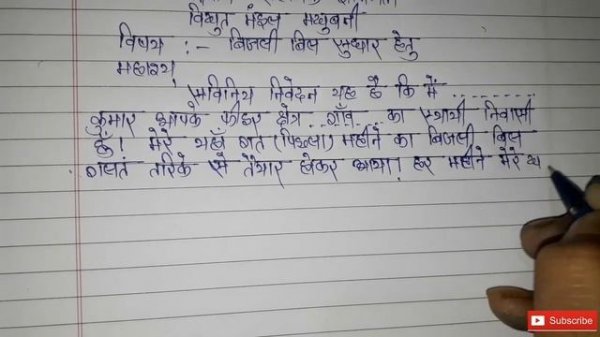 विद्युत मंडल मधुबनी
विषय :- बिजली बिल सुधार हेतु
महाशय,
सविनिय निवेदन यह है कि मैं .........
कुमार आपके फीडर क्षेत्र ..गाँव.....का स्थायी निवासी
हुँ। मेरे यहाँ गत (पिछला) महीने का बिजली बिल
गलत तरिके से तैयार होकर आया। हर महीने मेरे
Subscribe